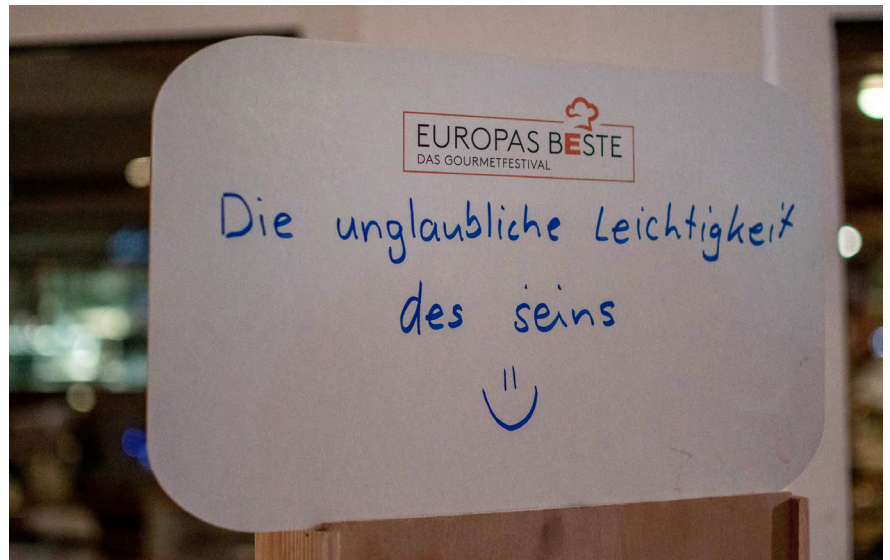 EUROPAS BESTE
DAS GOURMETFESTIVAL
Die unglaubliche Leichtigkeit
des seins